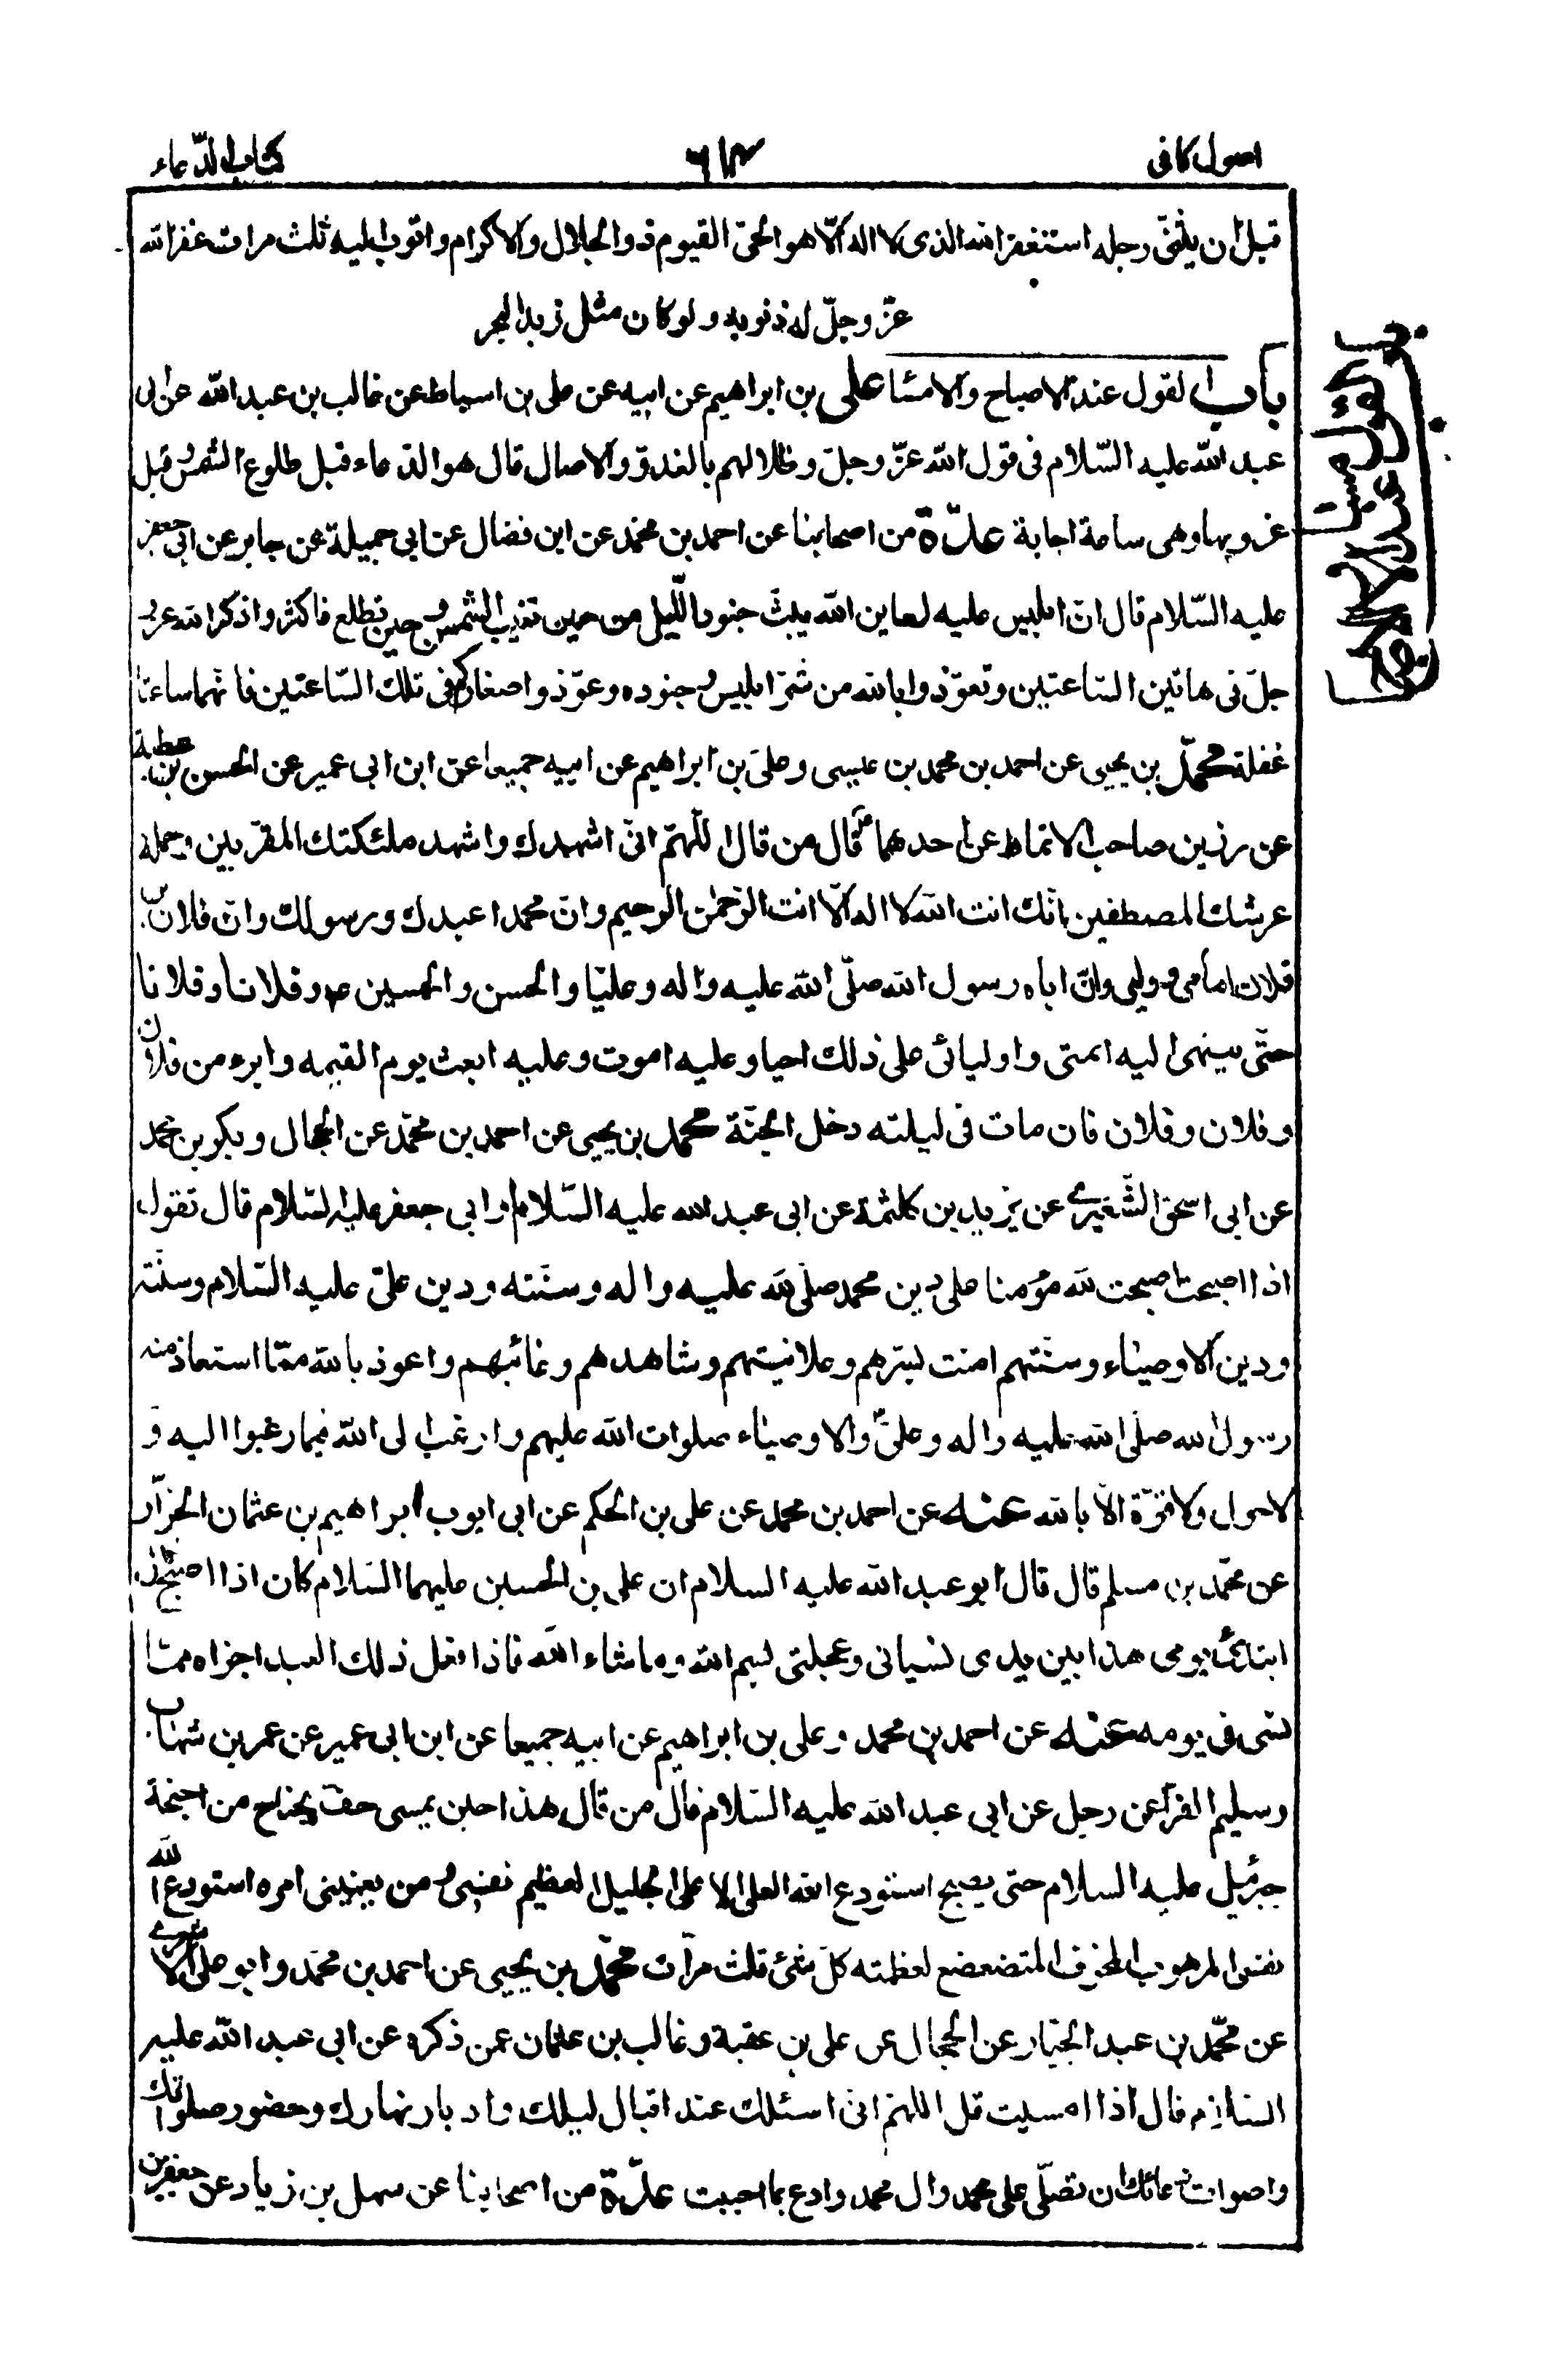 اصول كافى ٦١٣ كتاب الدّعاء
قبل ان يثنى رجله استغفر الله الذى لا اله الّا هو الحىّ القيوم ذو الجلال والاكرام واتوب اليه ثلث مرات غفر الله
عزّ وجلّ له ذنوبه ولو كان مثل زبد البحر
باب القول عند الاصباح والامسا على بن ابراهيم عن ابيه عن على بن اسباط عن غالب بن عبد الله عن ابى
عبد الله عليه السّلام فى قول الله عزّ وجلّ وظلالهم بالغدوّ والاصال قال هو الدعاء قبل طلوع الشمس وقبل
غروبها وهى ساعة اجابة عدّة من اصحابنا عن احمد بن محمد عن ابن فضال عن ابى جميلة عن جابر عن ابى جعفر
عليه السّلام قال انّ ابليس عليه لعاين الله يبثّ جنود اللّيل من حين تغيب الشمس وحين تطلع فاكثروا ذكر الله عز و
جلّ فى هاتين السّاعتين وتعوّذوا بالله من شرّ ابليس وجنوده وعوّذوا صغاركم فى تلك السّاعتين فانّهما ساعتا
غفلة محمّد بن يحيى عن احمد بن محمد بن عيسى وعلىّ بن ابراهيم عن ابيه جميعا عن ابن ابى عمير عن الحسن بن عطية
عن رزين صاحب الانماط عن احدهما ع قال من قال اللّهمّ انّى اشهدك واشهد ملئكتك المقرّبين وحملة
عرشك المصطفين بانّك انت الله لا اله الّا انت الرّحمٰن الرحيم وانّ محمدا عبدك ورسولك وانّ فلان بن
فلان امامى وولى وانّ اباه رسول الله صلّى الله عليه واله وعليّا والحسن والحسين ع وفلانا وفلانا
حتّى ينتهى اليه ائمتى واوليائى على ذلك احيا وعليه اموت وعليه ابعث يوم القيمه وابرء من فلان
وفلان وفلان فان مات فى ليلته دخل الجنّة محمد بن يحيى عن احمد بن محمّد عن الحجال وبكر بن محمد
عن ابى اسحق الشّعيرى عن يزيد بن كلثمة عن ابى عبد الله عليه السّلام او ابى جعفر عليه السّلام قال تقول
اذا اصبحت اصبحت لله مؤمنا على دين محمد صلّى الله عليه واله وسنّته ودين علىّ عليه السّلام وسنّته
ودين الاوصياء وسنّتهم امنت بسرّهم وعلانيتهم وشاهدهم وغائبهم واعوذ بالله ممّا استعاذ منه
رسول الله صلّى الله عليه واله وعلىّ والاوصياء صلوات الله عليهم وارغب الى الله فيما رغبوا اليه و
لا حول ولا قوّة الّا بالله عنه عن احمد بن محمد عن على بن الحكم عن ابى ايوب ابراهيم بن عثمان الخزّاز
عن محمّد بن مسلم قال قال ابو عبد الله عليه السلام ان على بن الحسين عليهما السّلام كان اذا اصبح قال
ابتدئ يومى هذا بين يدى نسيانى وعجلتى بسم الله وما شاء الله فاذا فعل ذلك العبد اجزاه ممّا
نسى فى يومه عنه عن احمد بن محمد وعلى بن ابراهيم عن ابيه جميعا عن ابن ابى عمير عن عمر بن شهاب
وسليم الفرّا عن رجل عن ابى عبد الله عليه السّلام قال من قال هذا حين يمسى حفّ بجناح من اجنحة
جبرئيل عليه السلام حتى يصبح استودع الله العلى الاعلى الجليل العظيم نفسى ومن يعنينى امره استودع الله
نفسى المرهوب المخوف المتضعضع لعظمته كلّ شئ ثلث مرّات محمّد بن يحيى عن احمد بن محمّد وابو على الاشعرى
عن محمّد بن عبد الجبّار عن الحجال عن على بن عقبة وغالب بن عثمان عمن ذكره عن ابى عبد الله عليه
السّلام قال اذا امسيت قل اللهمّ انى اسئلك عند اقبال ليلك وادبار نهارك وحضور صلواتك
واصوات دعائك ان تصلّى على محمد وال محمد وادع بما احببت عدّة من اصحابنا عن سهل بن زياد عن جعفر بن